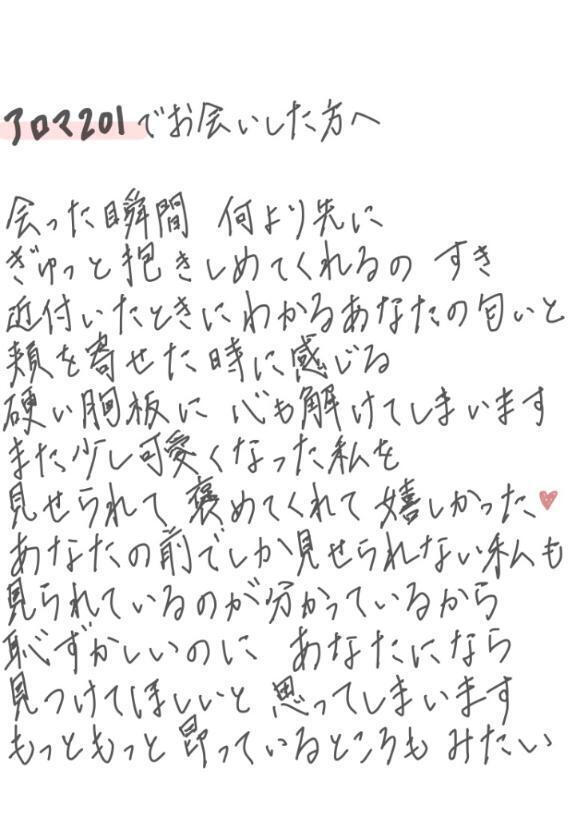 アロマ201でお会いした方へ
会った瞬間 何より先に
ぎゅっと抱きしめてくれるの すき
近付いたときにわかるあなたの匂いと
頬を寄せた時に感じる
硬い胸板に 心も解けてしまいます
また少し可愛くなった私を
見せられて 褒めてくれて 嬉しかった♥
あなたの前でしか見せられない私も
見られているのが分かっているから
恥ずかしいのに あなたになら
見つけてほしいと 思ってしまいます
もっともっと 昂っているところも みたい